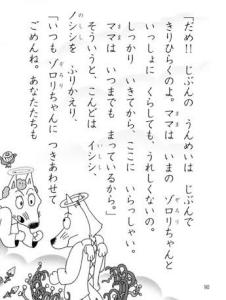 「だめ!! じぶんの うんめいは じぶんで
きりひらくのよ。ママは いまの ゾロリちゃんと
いっしょに くらしても、うれしくないの。
しっかり いきてから、ここに いらっしゃい。
ママは いつまでも まっているから。」
そういうと、こんどは イシシ、
ノシシを ふりかえり、
「いつも ゾロリちゃんに つきあわせて
ごめんね。あなたたちも
90